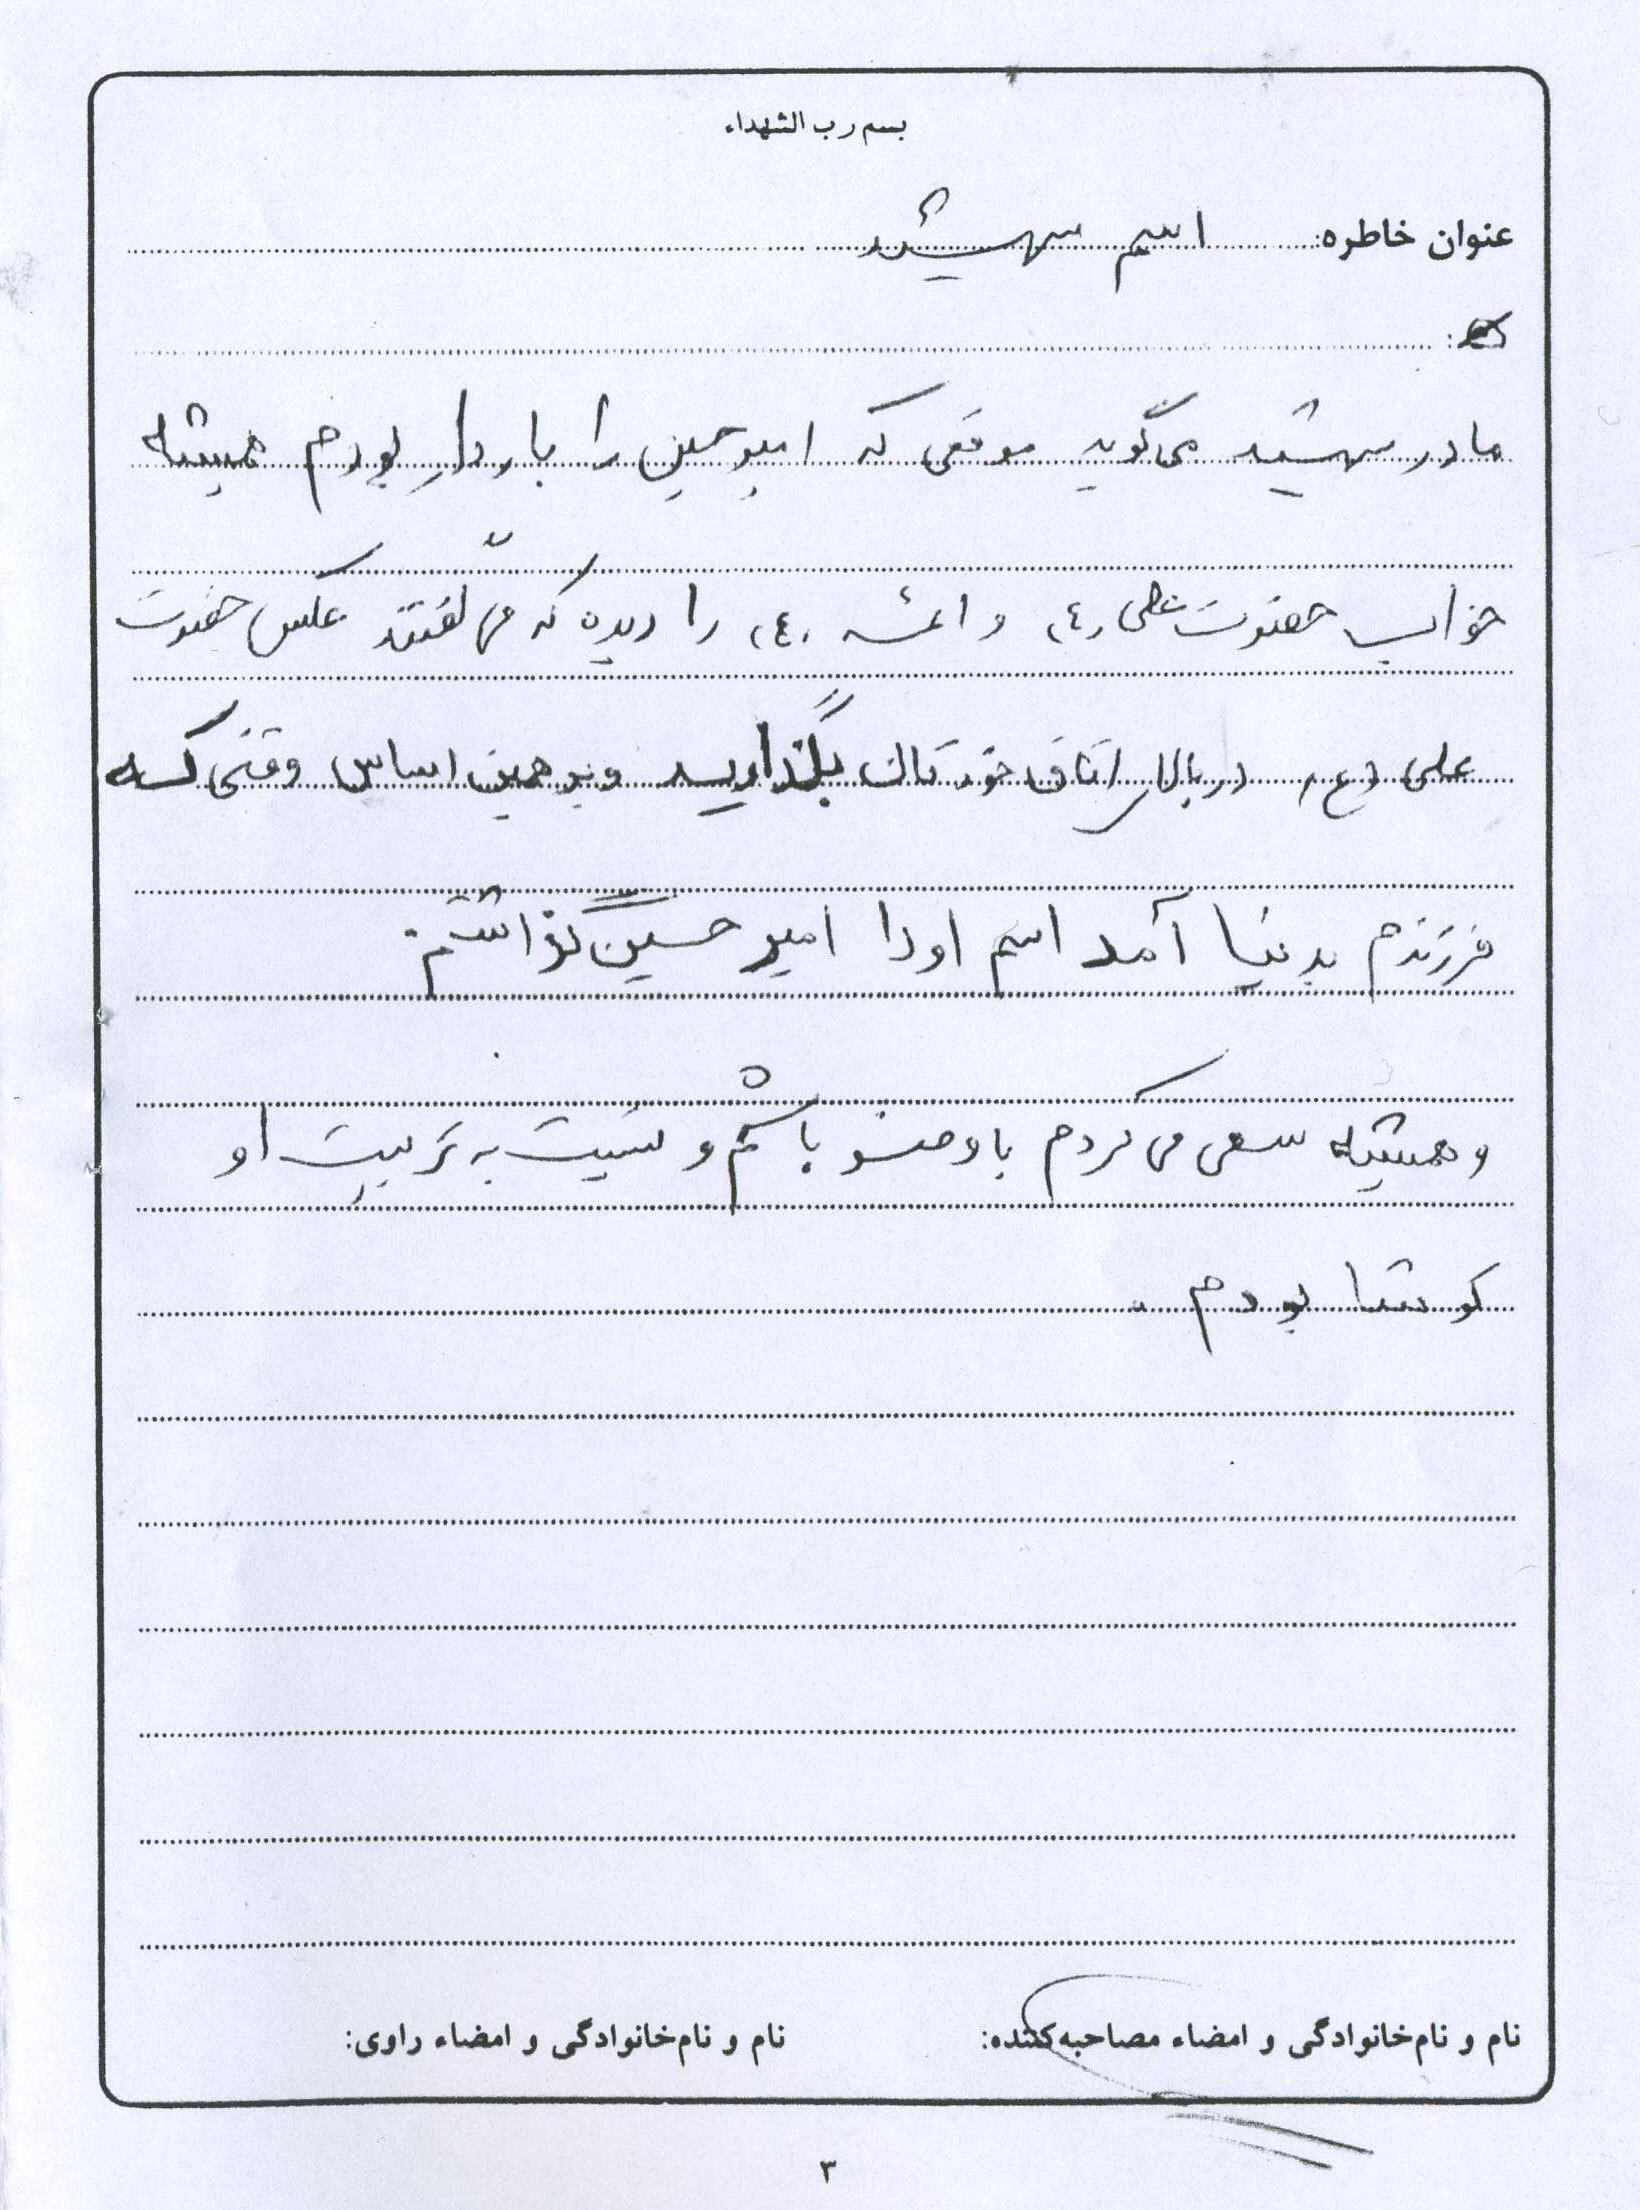 بسم رب الشهداء
عنوان خاطره: اسم شهید
مادر شهید می‌گوید موقعی که امیرحسین را باردار بودم همیشه
خواب حضرت علی (ع) و ائمه (ع) را دیده که می گفتند عکس حضرت
علی (ع) در بالای اتاق خودتان بگذارید و بر همین اساس وقتی که
فرزندم بدنیا آمد اسم او را امیر حسین گذاشتم.
و همیشه سعی می کردم با وضو باشم و نسبت به تربیت او
کوشا بودم.
نام و نام‌خانوادگی و امضاء مصاحبه‌کننده: نام و نام‌خانوادگی و امضاء راوی:
۳